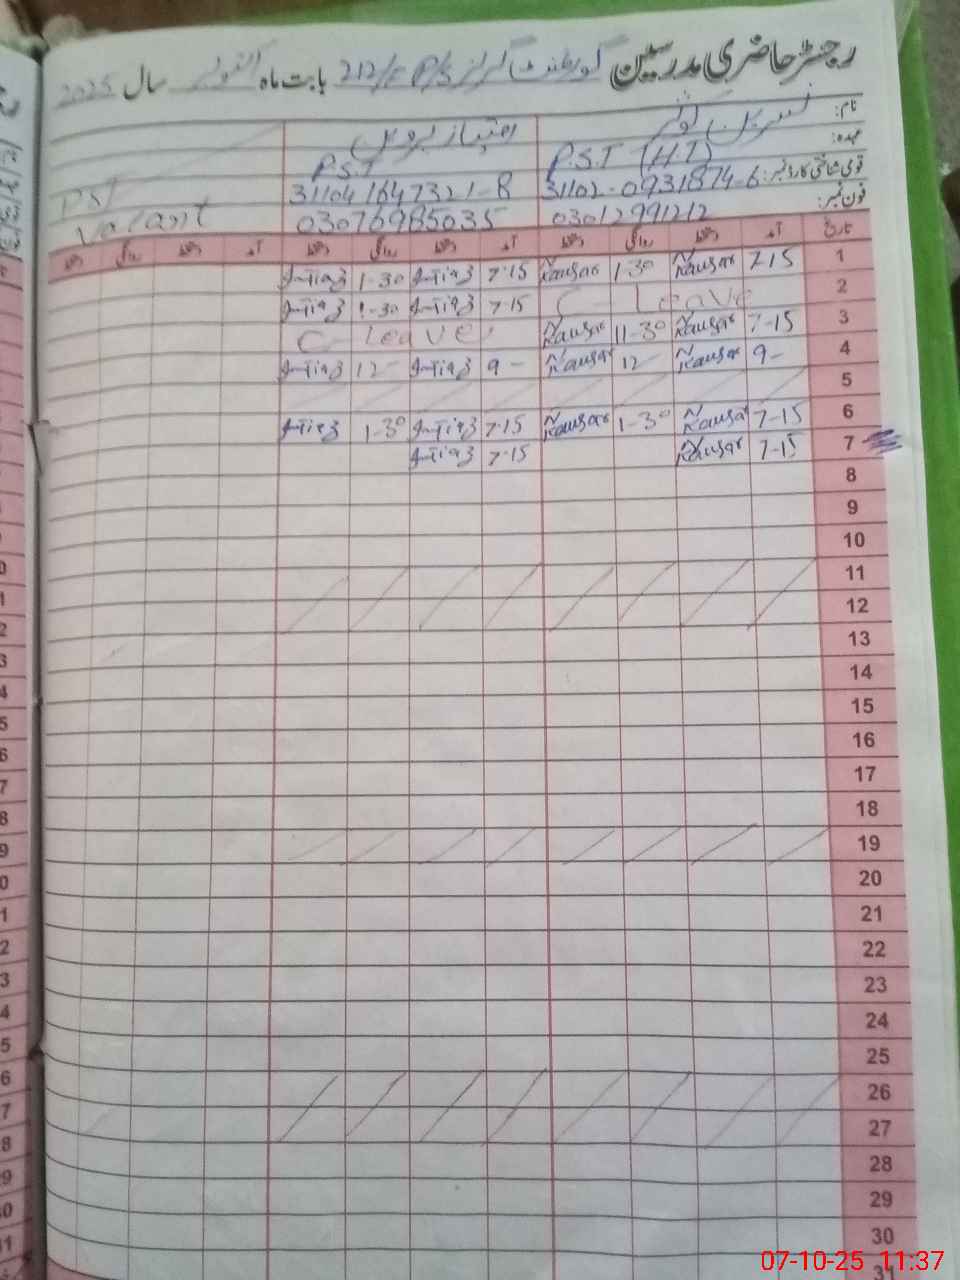 رجسٹر حاضری مدرسین گورنمنٹ گرلز P/S 212/E بابت ماہ اکتوبر سال 2025
نام: نسرین کوثر امتیاز پروین
عہدہ: P.S.T (H.T) P.S.T PST
قومی شناختی کارڈ نمبر: 31102-0931874-6 31104 1647321-8 Vacant
فون نمبر: 03012991212 03076985035
تاریخ آمد دستخط روانگی دستخط آمد دستخط روانگی دستخط آمد دستخط روانگی دستخط
1 7-15 Kausar 1-30 Kausar 7-15 Imtiaz 1-30 Imtiaz
2 C- Leave 7-15 Imtiaz 1-30 Imtiaz
3 7-15 Kausar 11-30 Kausar C- Leave
4 9- Kausar 12- Kausar 9- Imtiaz 12- Imtiaz
5
6 7-15 Kausar 1-30 Kausar 7-15 Imtiaz 1-30 Imtiaz
7 7-15 Kausar 7-15 Imtiaz
8
9
10
11
12
13
14
15
16
17
18
19
20
21
22
23
24
25
26
27
28
29
30
31
07-10-25 11:37